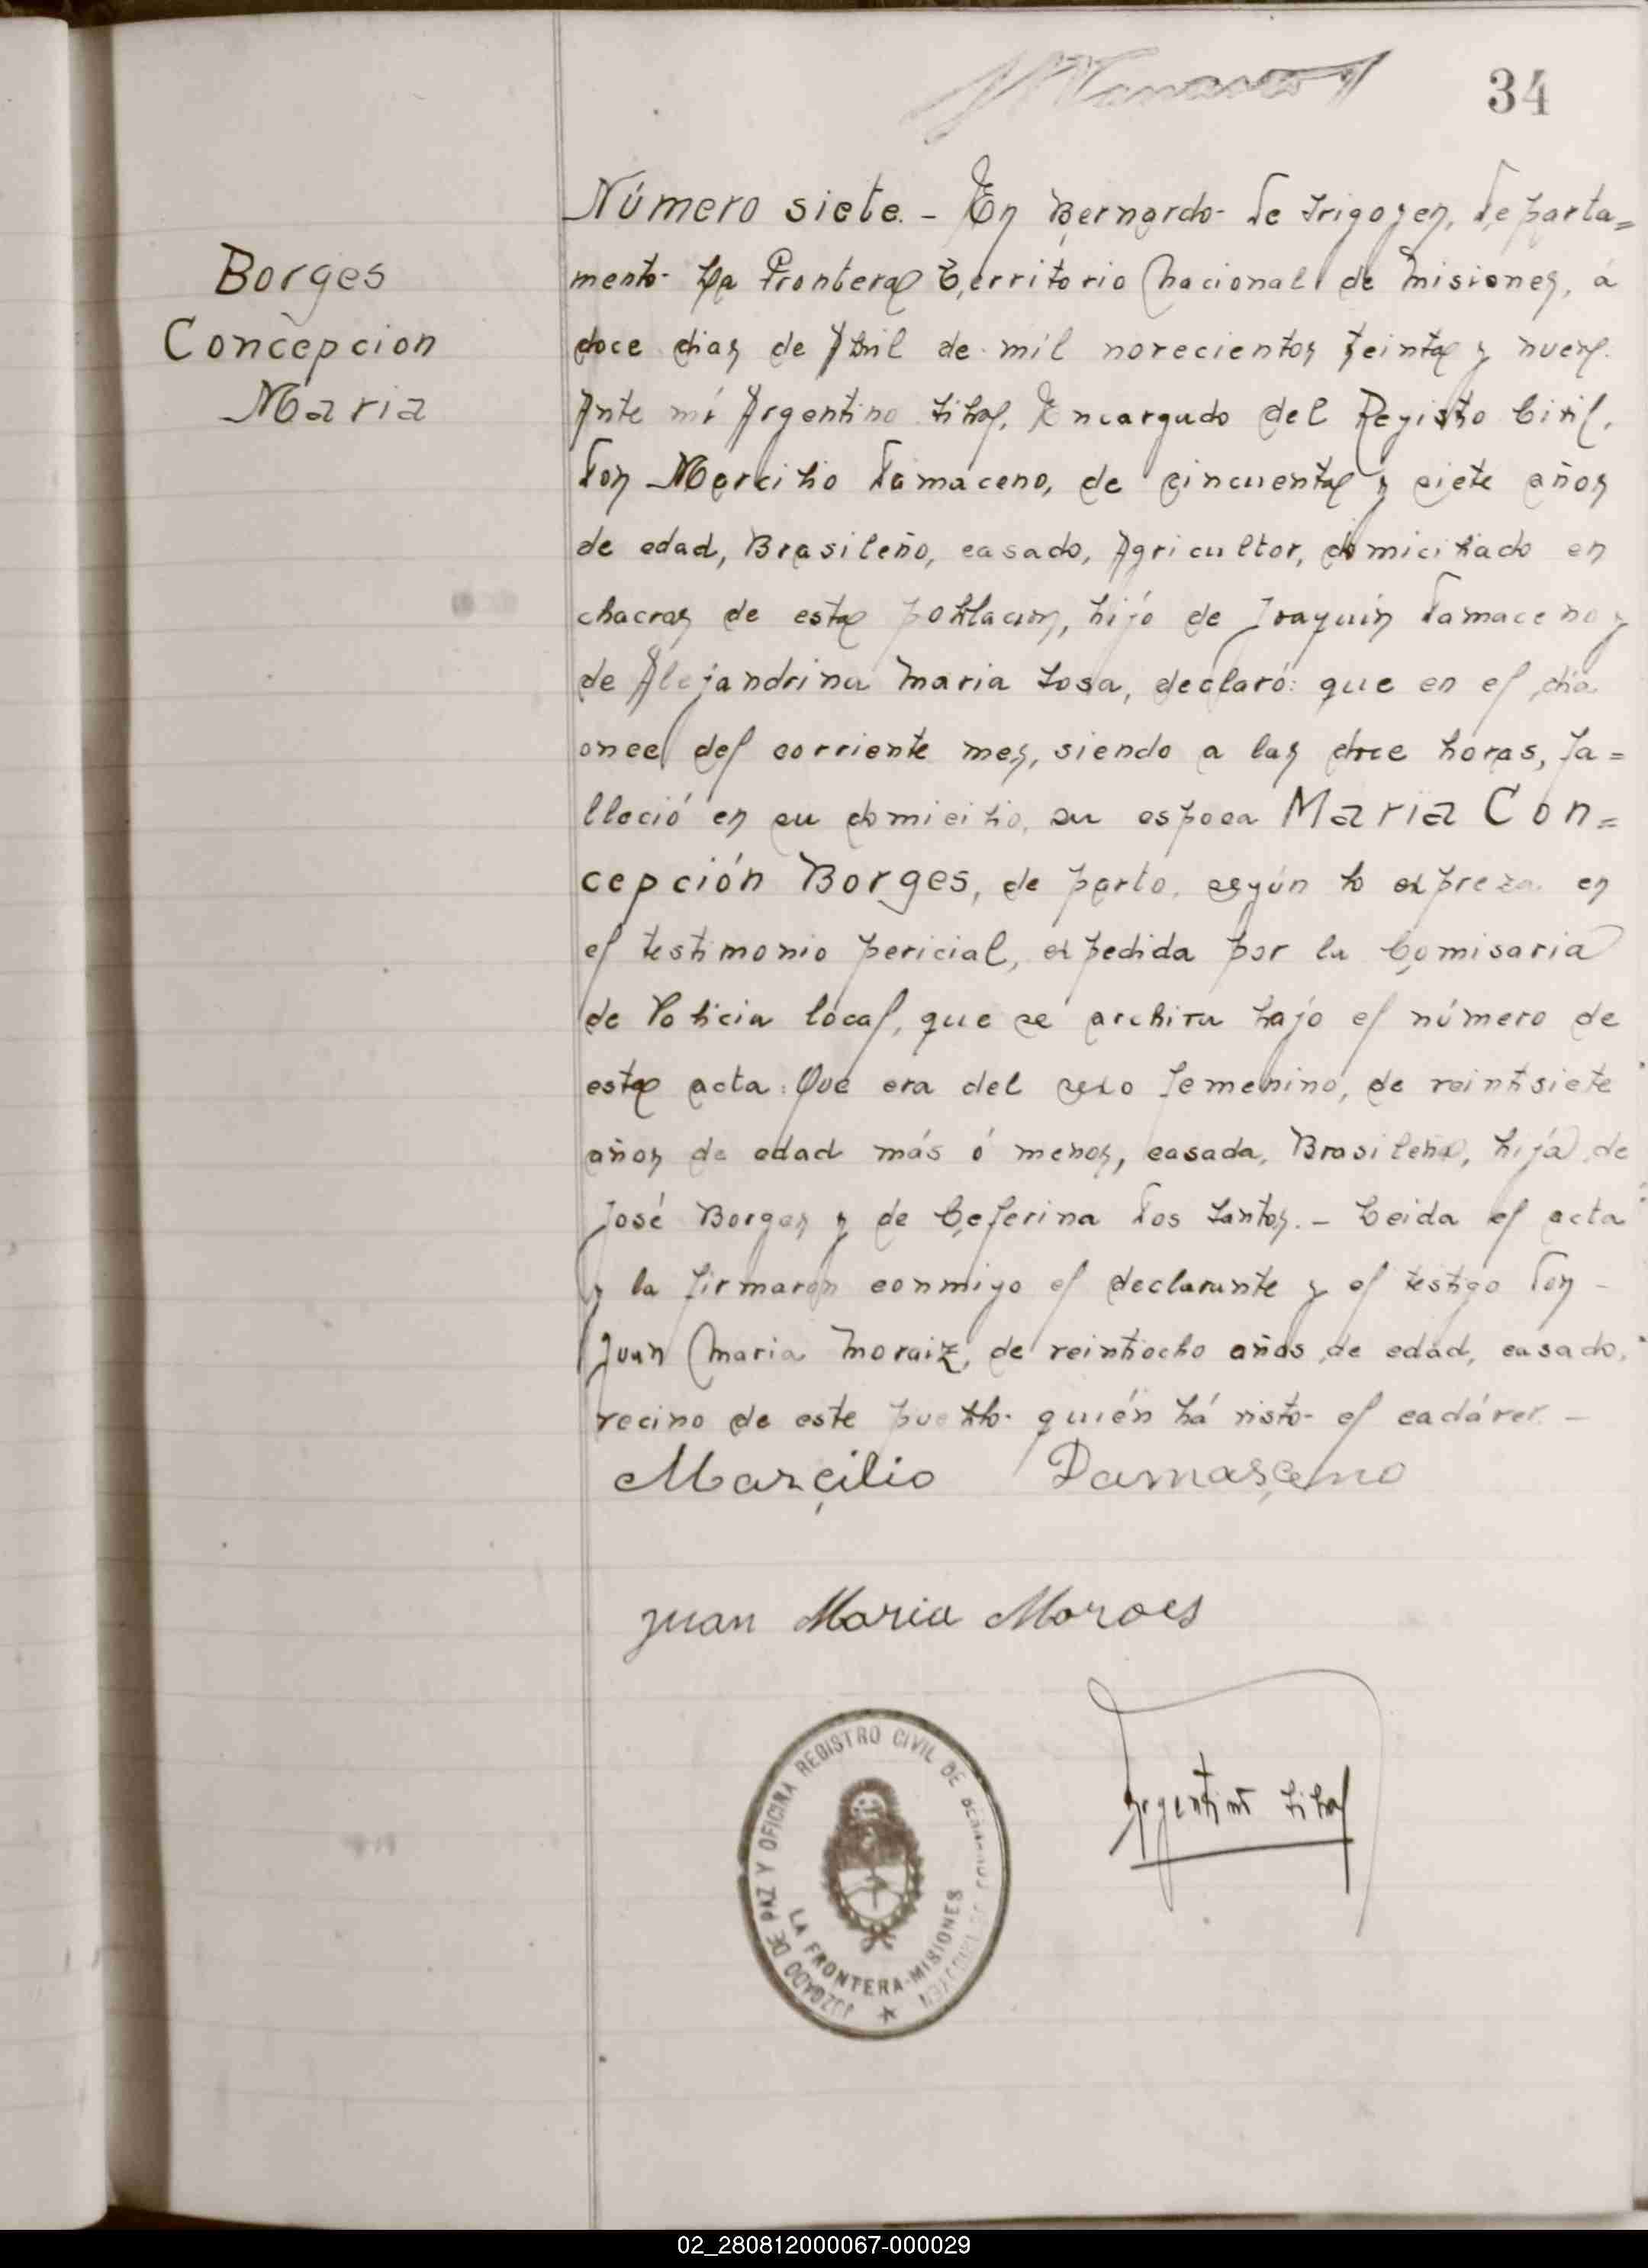 34
Borges
Concepcion
Maria
Número siete. - En Bernardo de Irigoyen, departa=
mento La Frontera Territorio Nacional de Misiones, á
doce dias de Abril de mil novecientos treinta y nueve.
Ante mí Argentino Encargado del Registro Civil,
don Marcilio Damaceno, de cincuenta y siete años
de edad, Brasileño, casado, Agricultor, domiciliado en
chacras de esta población, hijo de Joaquín Damaceno y
de Alejandrina Maria Sosa, declaró: que en el dia
once del corriente mes, siendo a las doce horas, fa=
lleció en su domicilio, su esposa Maria Con=
cepción Borges, de parto, según lo expreza en
el testimonio pericial, expedida por la Comisaria
de Policia local, que se archiva bajo el número de
esta acta: Que era del sexo femenino, de veintisiete
años de edad más ó menos, casada, Brasileña, hija de
José Borges y de Ceferina dos Santos. - Leida el acta
y la firmaron conmigo el declarante y el testigo don -
Juan Maria Moraiz, de veintiocho años de edad, casado,
vecino de este pueblo quién há visto el cadáver. -
Marcilio Damasceno
Juan Maria Moraes
JUZGADO DE PAZ Y OFICINA REGISTRO CIVIL DE BERNARDO DE IRIGOYEN
LA FRONTERA-MISIONES
Argentino
02_280812000067-000029